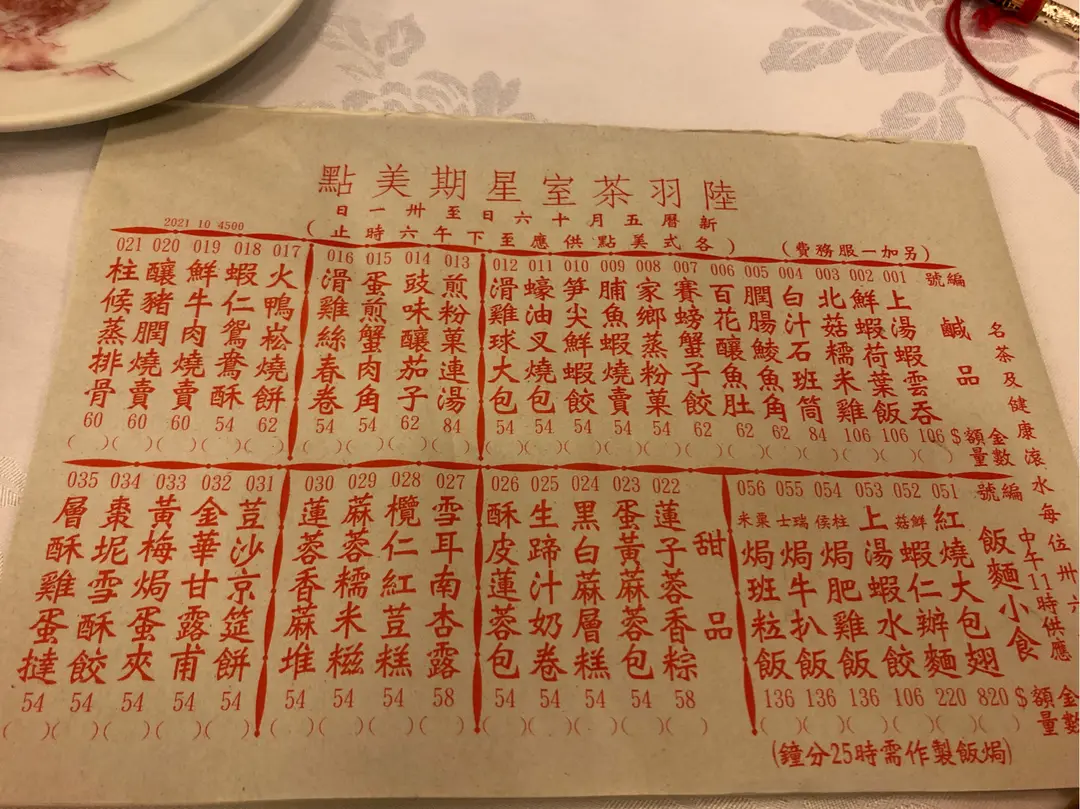 陸羽茶室星期美點
新曆五月十六日至卅一日
(各式美點供應至下午六時止)
(另加一服務費)
2021 10 4500
名茶及健康滾水每位卅六
中午11時供應
編號 鹹品 金額$ 數量
001 上湯蝦雲吞 106 ( )
002 鮮蝦荷葉飯 106 ( )
003 北菇糯米雞 106 ( )
004 白汁石班筒 84 ( )
005 潤腸鯪魚角 62 ( )
006 百花釀魚肚 62 ( )
007 賽螃蟹子餃 62 ( )
008 家鄉蒸粉菓 54 ( )
009 脯魚蝦燒賣 54 ( )
010 筍尖鮮蝦餃 54 ( )
011 蠔油叉燒包 54 ( )
012 滑雞球大包 54 ( )
013 煎粉菓連湯 84 ( )
014 豉味釀茄子 62 ( )
015 蛋煎蟹肉角 54 ( )
016 滑雞絲春卷 54 ( )
017 火鴨崧燒餅 62 ( )
018 蝦仁鴛鴦酥 54 ( )
019 鮮牛肉燒賣 60 ( )
020 釀豬膶燒賣 60 ( )
021 柱候蒸排骨 60 ( )
編號 飯麵小食 金額$ 數量
051 紅燒大包翅 820 ( )
052 鮮菇蝦仁辦麵 220 ( )
053 上湯蝦水餃 106 ( )
054 柱侯焗肥雞飯 136 ( )
055 瑞士焗牛扒飯 136 ( )
056 粟米焗班粒飯 136 ( )
(焗飯製作需時25分鐘)
甜品
022 蓮子蓉香粽 58 ( )
023 蛋黃麻蓉包 54 ( )
024 黑白麻層糕 54 ( )
025 生蹄汁奶卷 54 ( )
026 酥皮蓮蓉包 54 ( )
027 雪耳南杏露 58 ( )
028 欖仁紅荳糕 54 ( )
029 麻蓉糯米糍 54 ( )
030 蓮蓉香麻堆 54 ( )
031 荳沙京筳餅 54 ( )
032 金華甘露甫 54 ( )
033 黃梅焗蛋夾 54 ( )
034 棗坭雪酥餃 54 ( )
035 層酥雞蛋撻 54 ( )